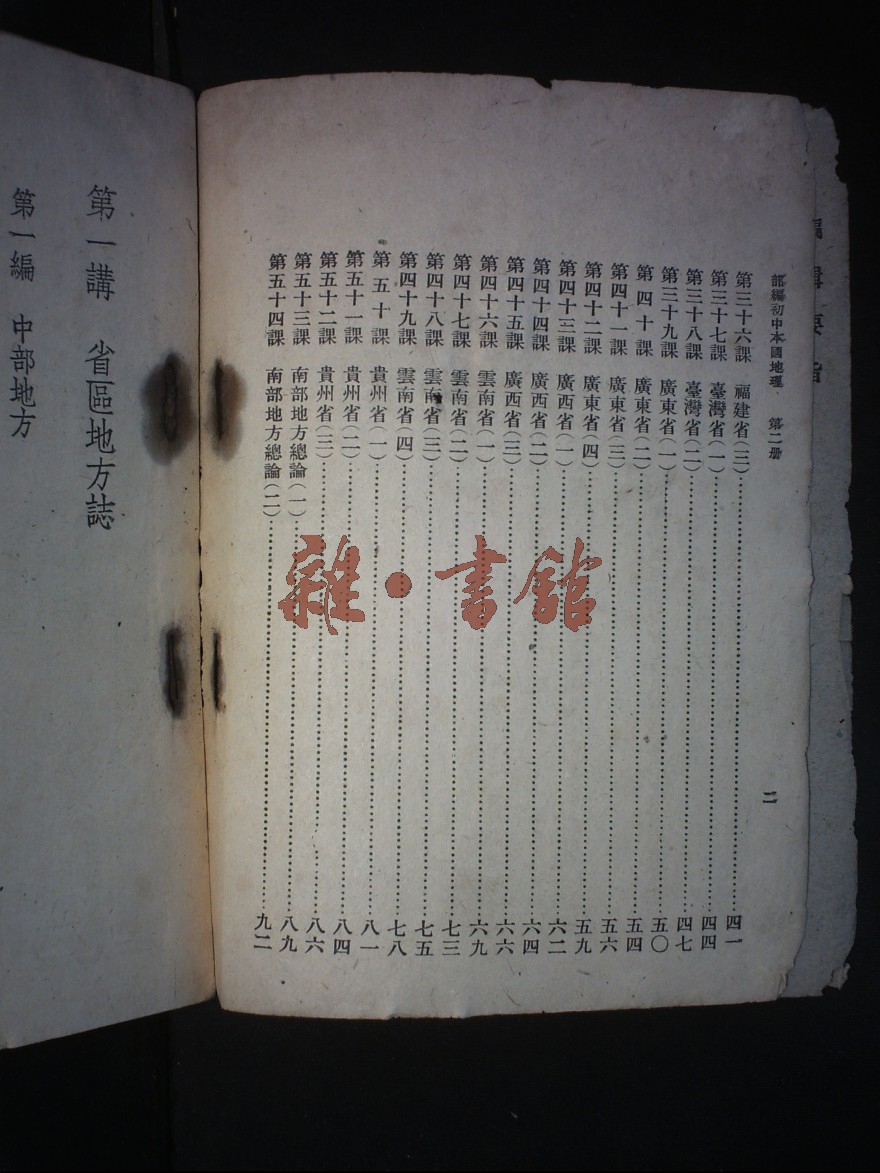 部編初中本國地理 第二册
二
第三十六課 福建省(三)……四一
第三十七課 臺灣省(一)……四四
第三十八課 臺灣省(二)……四七
第三十九課 廣東省(一)……五〇
第四十課 廣東省(二)……五四
第四十一課 廣東省(三)……五六
第四十二課 廣東省(四)……五九
第四十三課 廣西省(一)……六二
第四十四課 廣西省(二)……六四
第四十五課 廣西省(三)……六六
第四十六課 雲南省(一)……六九
第四十七課 雲南省(二)……七三
第四十八課 雲南省(三)……七五
第四十九課 雲南省(四)……七八
第五十課 貴州省(一)……八一
第五十一課 貴州省(二)……八四
第五十二課 貴州省(三)……八六
第五十三課 南部地方總論(一)……八九
第五十四課 南部地方總論(二)……九二
第一講 省區地方誌
第一編 中部地方
雜·書館